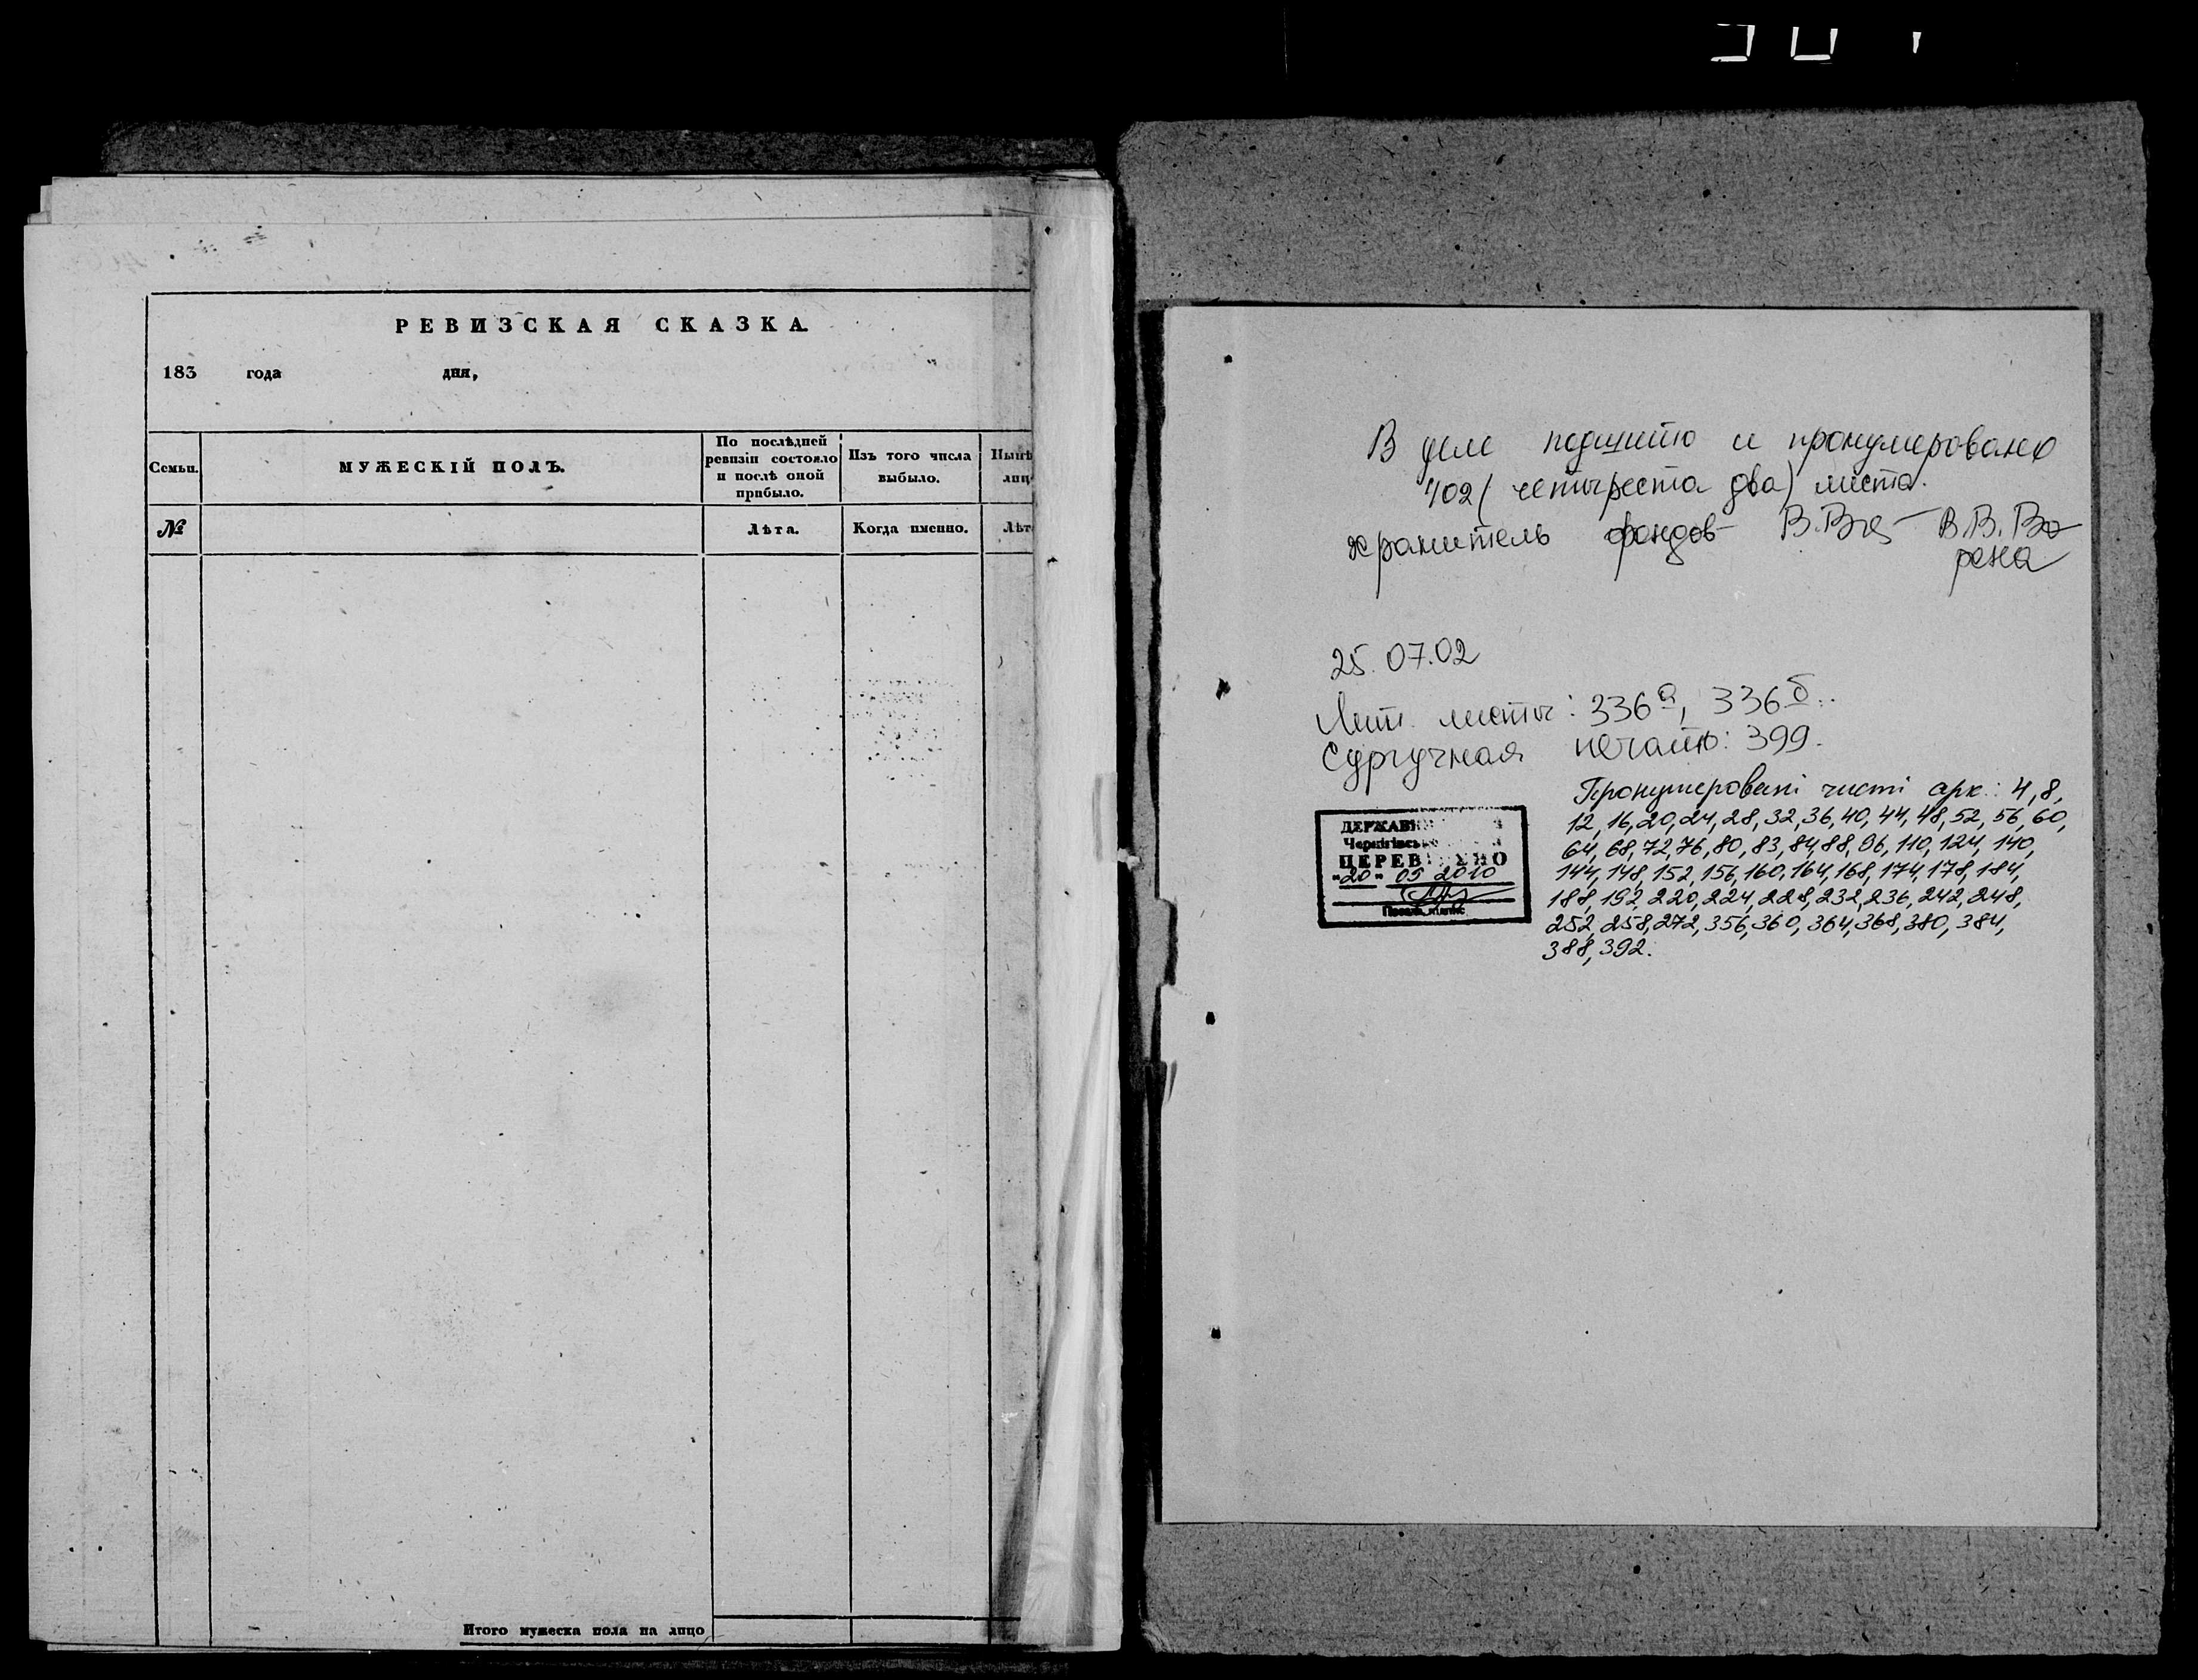 РЕВИЗСКАЯ СКАЗКА.
183 года дня,
Семьи.
МУЖЕСКІЙ ПОЛЪ.
По послѣдней
ревизіи состояло
и послѣ оной
прибыло.
Изъ того числа
выбыло.
№
Лѣта.
Когда именно.
Итого мужеска пола на лицо
В деле подшито и пронумеровано
402 (четыреста два) листа.
хранитель фондов В.В. Во
рона
25.07.02
Лит. листы: 336а, 336б.
Сургучная печать: 399.
Пронумеровані чисті арк.: 4, 8,
12, 16, 20, 24, 28, 32, 36, 40, 44, 48, 52, 56, 60,
64, 68, 72, 76, 80, 83, 84, 88, 96, 110, 124, 140,
144, 148, 152, 156, 160, 164, 168, 174, 178, 184,
188, 192, 220, 224, 228, 232, 236, 242, 248,
252, 258, 272, 356, 360, 364, 368, 380, 384,
388, 392.
"20" 05 2010